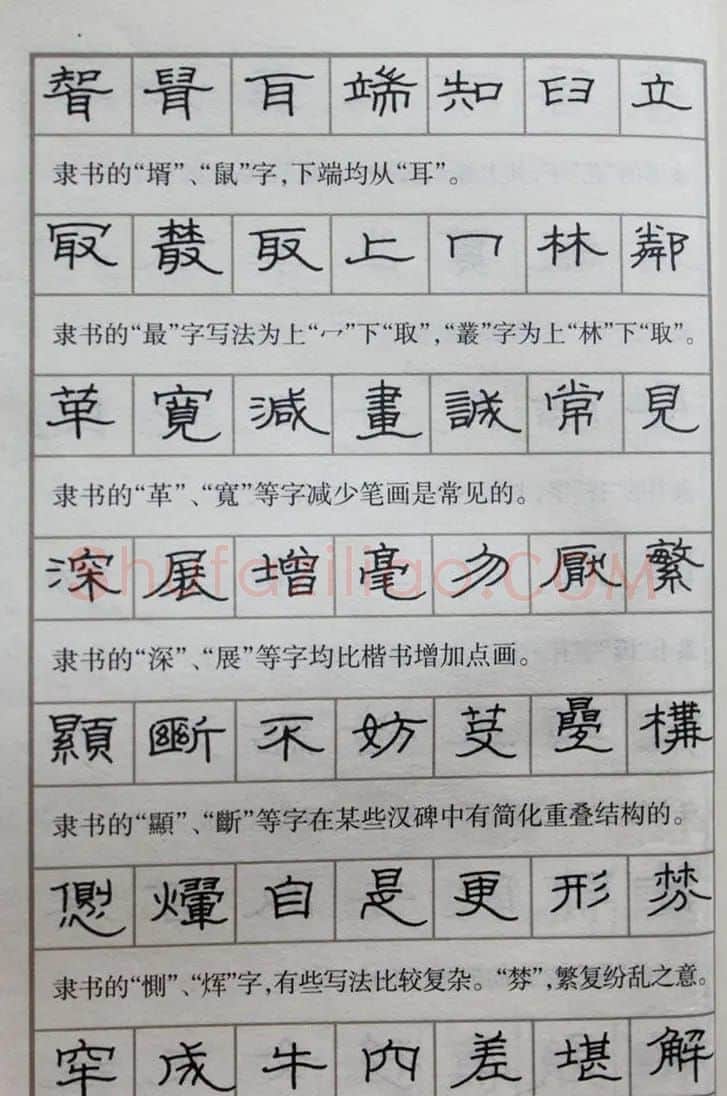 耳 端 知 臼 立
隶书的“壻”、“鼠”字，下端均从“耳”。
冣 取 上 冖 林 鄰
隶书的“最”字写法为上“冖”下“取”，“叢”字为上“林”下“取”。
革 寬 減 畫 誠 常 見
隶书的“革”、“寬”等字减少笔画是常见的。
深 展 增 毫 勿 厭 繁
Shufaziliao.COM
隶书的“深”、“展”等字均比楷书增加点画。
顯 斷 不 妨 芟 疊 構
隶书的“顯”、“斷”等字在某些汉碑中有简化重叠结构的。
自 是 更 形 棼
隶书的“惻”、“烨”字，有些写法比较复杂。“棼”，繁复纷乱之意。
牢 成 牛 内 差 堪 解